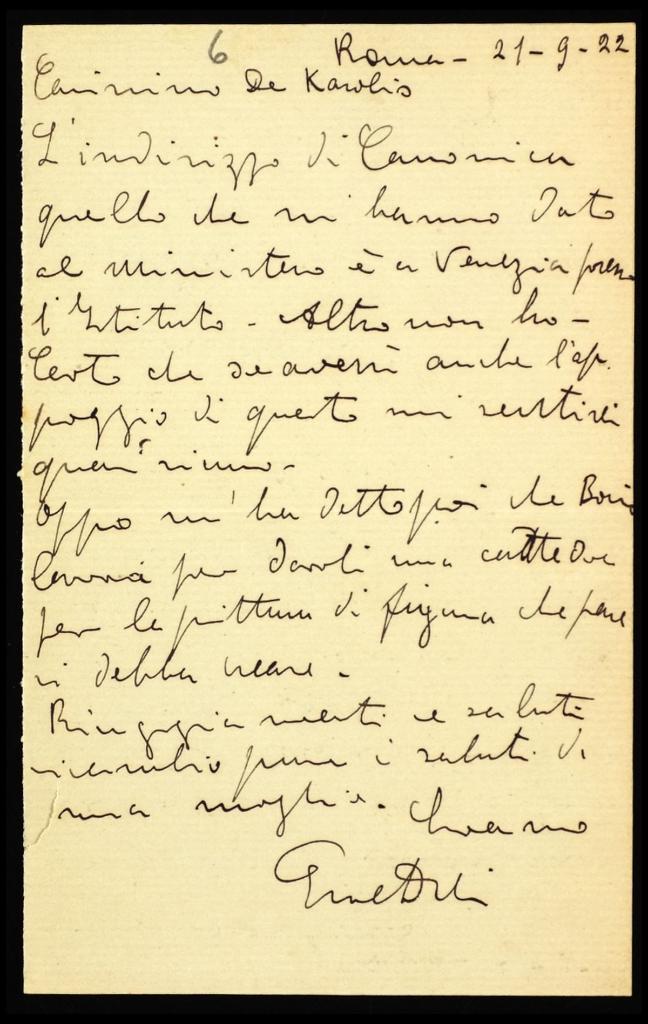 6
Roma - 21-9-22
Carissimo De Karolis
L'indirizzo di Canonica
quello che mi hanno dato
al Ministero è a Venezia presso
l'Istituto - Altro non ho -
Certo che se avessi anche l'ap
poggio di questo mi sentirei
quasi sicuro -
Oppo m'ha detto poi che
per darti una cattedra
per la pittura di figura che pare
si debba creare.
Ringraziamenti e saluti
ricambio pure i saluti di
mia moglie.